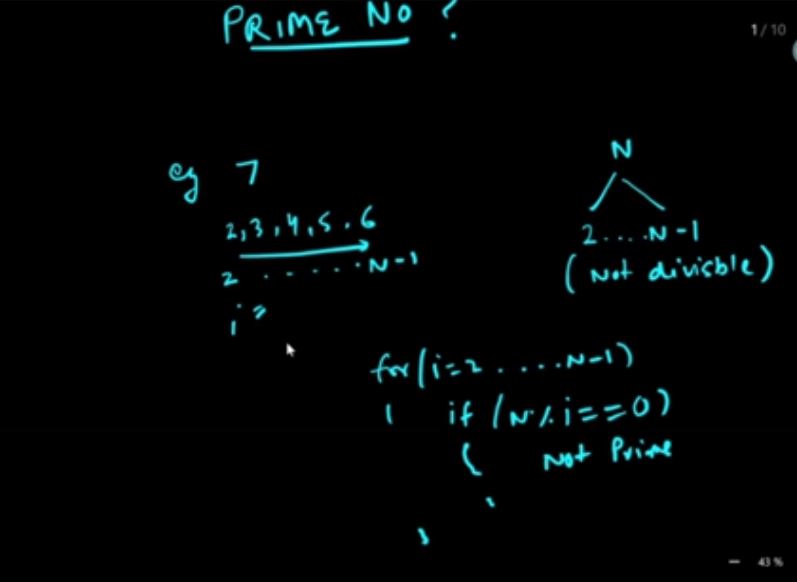 PRIME NO ?
1 / 10
eg 7
2, 3, 4, 5, 6
2 ...... N-1
i =
N
2 .... N-1
( Not divisble )
for (i=2 ..... N-1)
{ if (N % i == 0)
{ Not Prime
}
}
43 %